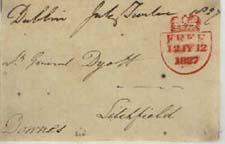 Dublin July Twelve 1827
FREE
12 JY 12
1827
Lt General Dyott
Lichfield
Downes